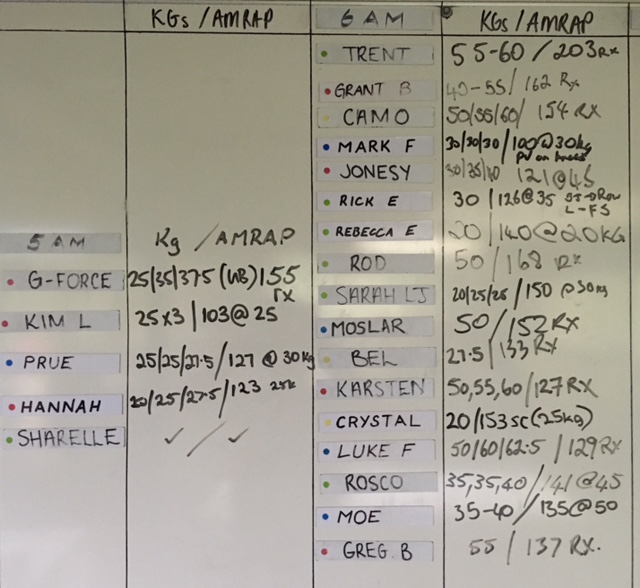 KGs / AMRAP
5 AM Kg / AMRAP
G-FORCE 25/35/375 (UB) 155
rx
KIM L 25x3 / 103 @ 25
PRUE 25/25/27.5/127 @ 30kg
HANNAH 20/25/27.5/123 25k
SHARELLE ✓ / ✓
6 AM KGs / AMRAP
TRENT 55-60 / 203 Rx
GRANT B 40-55 / 162 Rx
CAMO 50/55/60/ 154 RX
MARK F 30/30/30/100@30kg
JONESY 30/35/40 121@45
RICK E 30 / 126@35
L-FS
REBECCA E 20 / 140@20KG
ROD 50 / 168 Rx
SARAH LJ 20/25/25 / 150 @30kg
MOSLAR 50 / 152 RX
BEL 27.5 / 133 RX
KARSTEN 50,55,60/127 RX
CRYSTAL 20/153 SC (25kg)
LUKE F 50/60/62.5 / 129 RX
ROSCO 35,35,40 / 141 @45
MOE 35-40 / 135@50
GREG. B 55 / 137 RX.